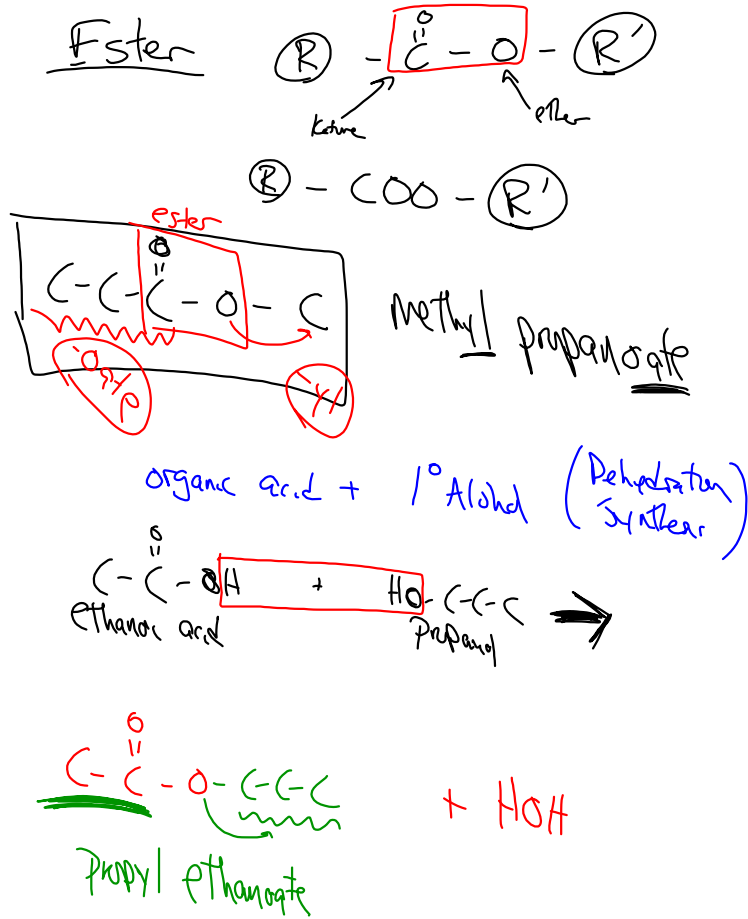 Ester
O
R - C - O - R'
Ketone ether
R - COO - R'
ester
O
C - C - C - O - C
Methyl propanoate
-oate -yl
organic acid + 1° Alcohol (Dehydration Synthesis)
O
C - C - OH + HO - C - C - C →
ethanoic acid propanol
O
C - C - O - C - C - C + HOH
propyl ethanoate